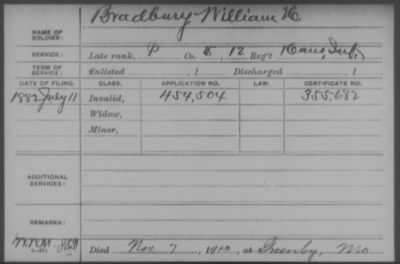 Bradbury William H
NAME OF SOLDIER:
SERVICE: Late rank, P Co. 12 Reg't Kans Inf,
TERM OF SERVICE: Enlisted , 1 Discharged , 1
DATE OF FILING. CLASS. APPLICATION NO. LAW. CERTIFICATE NO.
1882 July 11 Invalid, 454,504 355,682
Widow,
Minor,
ADDITIONAL SERVICES:
REMARKS:
Died Nov. 7, 19 at Mo